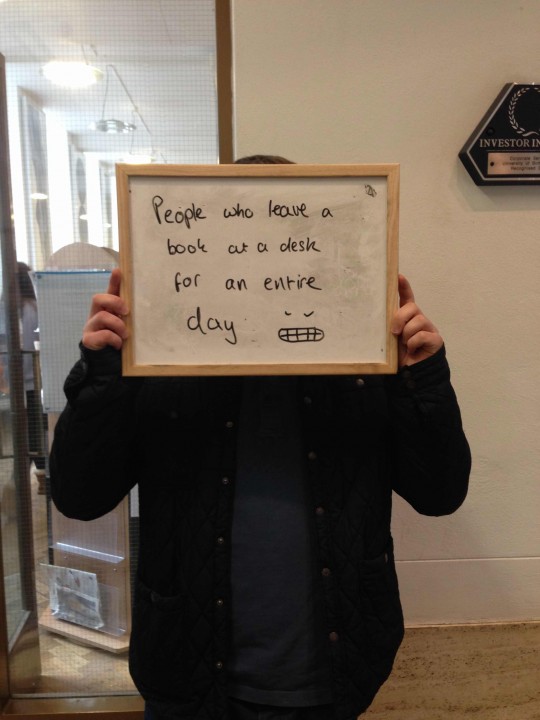 People who leave a
book at a desk
for an entire
day
INVESTOR IN